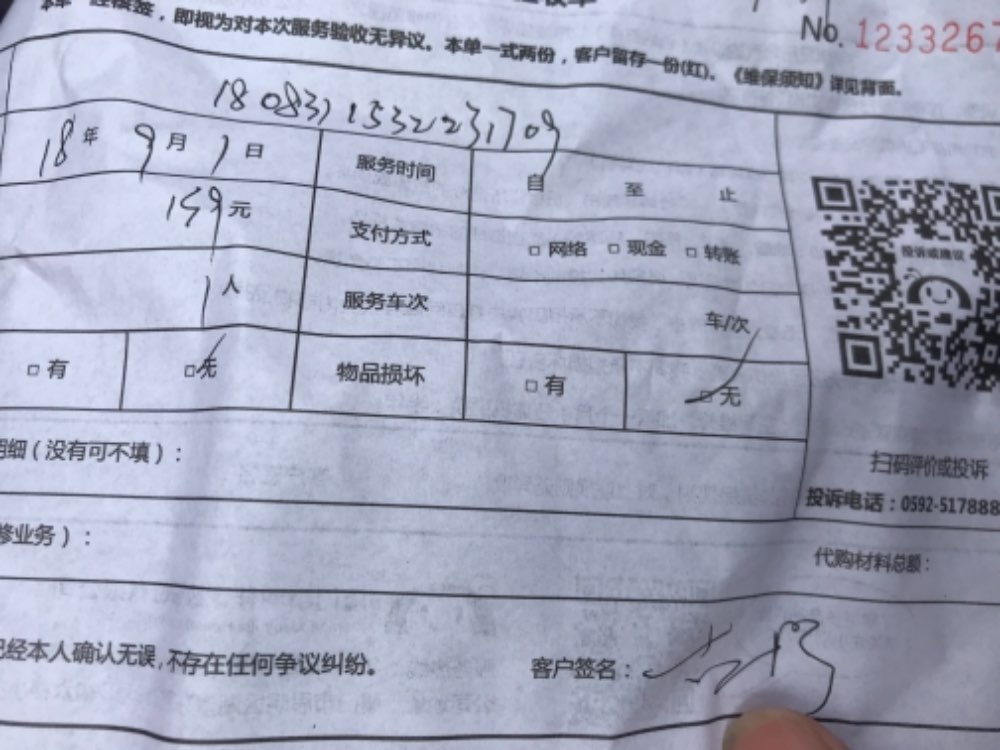 No. 1233267
签，即视为对本次服务验收无异议。本单一式两份，客户留存一份(红)。《维保须知》详见背面。
1808311532231709
18年 9月 1日 服务时间 自 至 止
159元 支付方式 □网络 □现金 □转账
投诉或建议
1人 服务车次 车/次
□有 □无 物品损坏 □有 □无
明细（没有可不填）：
扫码评价或投诉
投诉电话：0592-517888
修业务）：
代购材料总额：
已经本人确认无误，不存在任何争议纠纷。 客户签名：